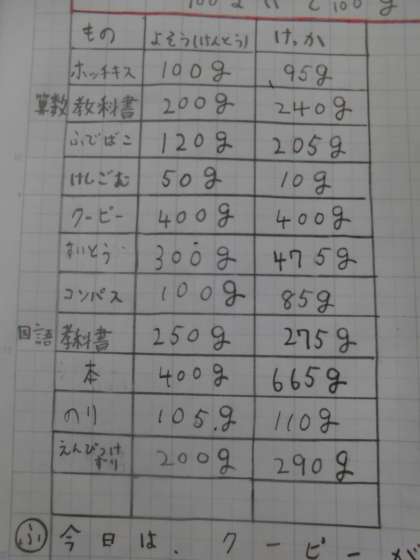 もの よそう(けんとう) けっか
ホッチキス 100g 95g
算数教科書 200g 240g
ふでばこ 120g 205g
けしごむ 50g 10g
クーピー 400g 400g
300g 475g
コンパス 100g 85g
国語教科書 250g 275g
本 400g 665g
のり 105g 110g
えんぴつけずり 200g 290g
ふ 今日は、クーピーが